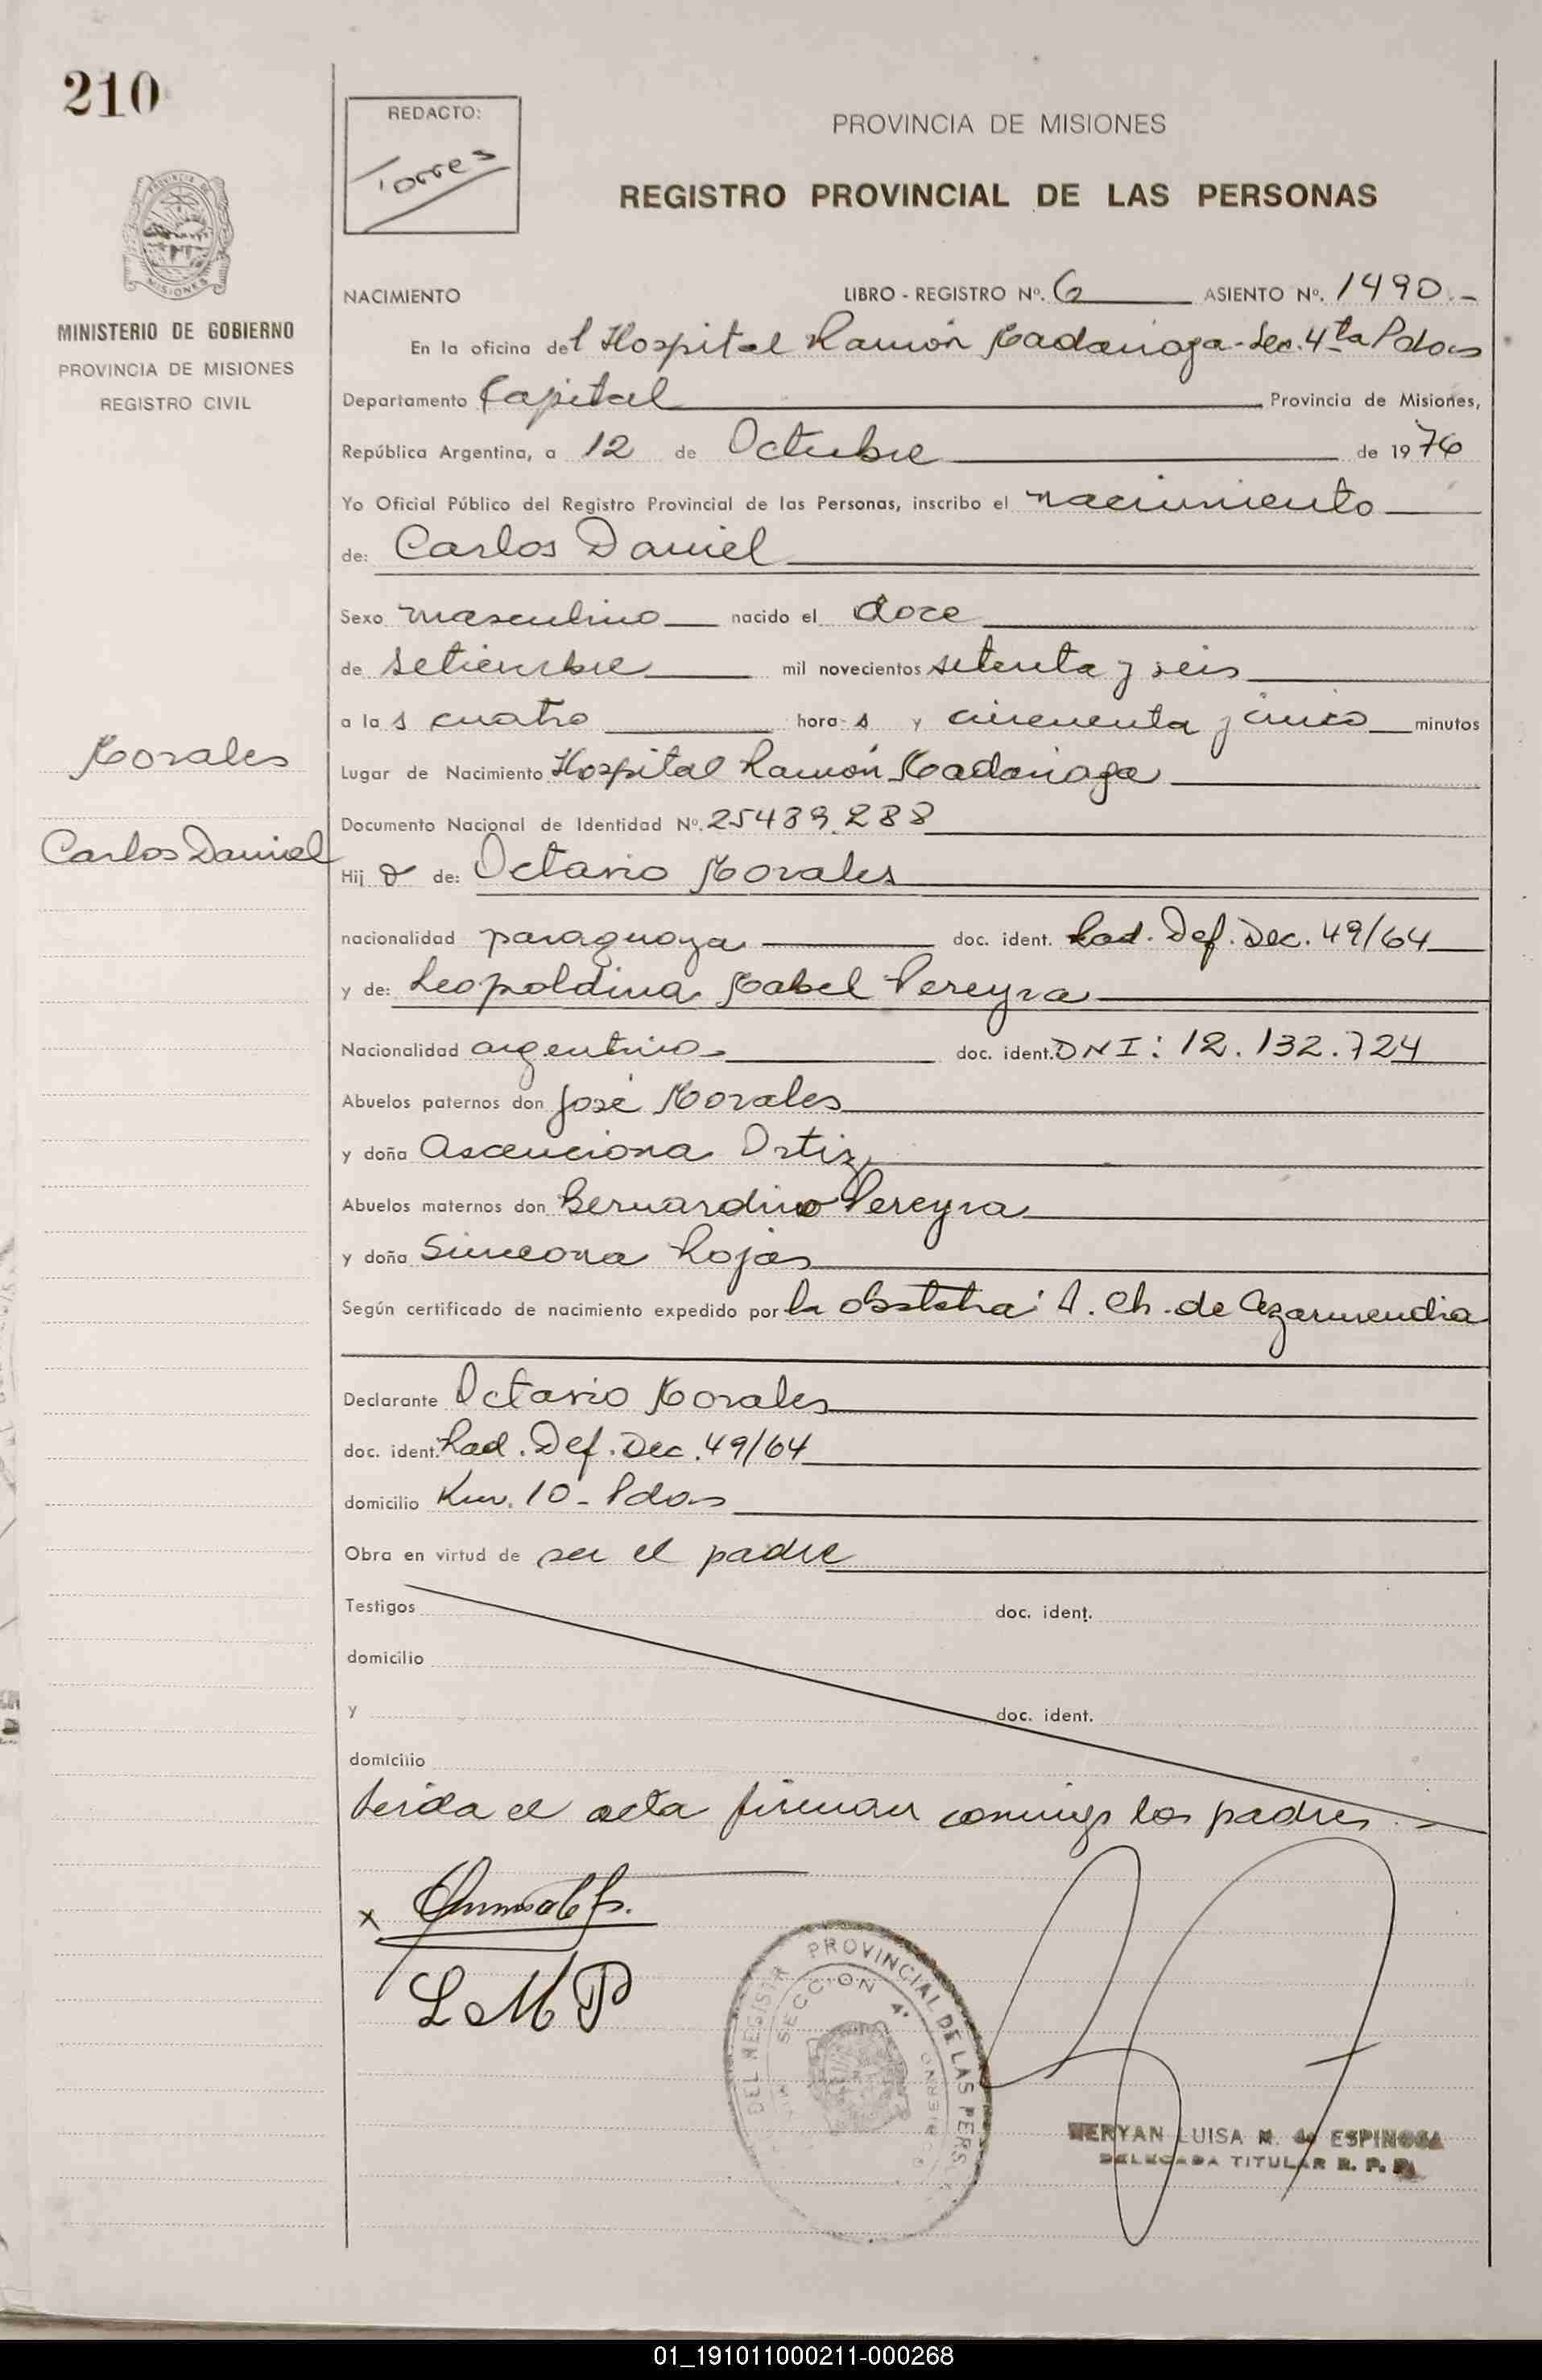 210
REDACTO:
Torres
PROVINCIA DE MISIONES
REGISTRO PROVINCIAL DE LAS PERSONAS
MINISTERIO DE GOBIERNO
PROVINCIA DE MISIONES
REGISTRO CIVIL
NACIMIENTO LIBRO - REGISTRO Nº. 6 ASIENTO Nº. 1490.-
En la oficina del Hospital Ramón Madariaga - Sec. 4ta Pdas
Departamento Capital Provincia de Misiones,
República Argentina, a 12 de Octubre de 1976
Yo Oficial Público del Registro Provincial de las Personas, inscribo el nacimiento
de: Carlos Daniel
Sexo masculino nacido el doce
de setiembre mil novecientos setenta y seis
a las cuatro hora-s y cincuenta y cinco minutos
Morales
Lugar de Nacimiento Hospital Ramón Madariaga
Documento Nacional de Identidad Nº. 25439.288
Carlos Daniel
Hijo de: Octavio Morales
nacionalidad paraguaya doc. ident. Rad. Def. Dec. 49/64
y de: Leopoldina Mabel Pereyra
Nacionalidad argentina doc. ident. DNI: 12.132.724
Abuelos paternos don José Morales
y doña Ascenciona Ortiz
Abuelos maternos don Bernardino Pereyra
y doña Simeona Rojas
Según certificado de nacimiento expedido por la obstetra: A. Ch. de Azarmendia
Declarante Octavio Morales
doc. ident. Rad. Def. Dec. 49/64
domicilio Km. 10 - Pdas
Obra en virtud de ser el padre
Testigos doc. ident.
domicilio
y doc. ident.
domicilio
Leida el acta firman conmigo los padres.-
x
L M P
DEL REGISTR PROVINCIAL DE LAS PERS
SECCION 4ª
GOBIERNO
MERYAN LUISA M. de ESPINOSA
DELEGADA TITULAR R. P. P.
01_191011000211-000268